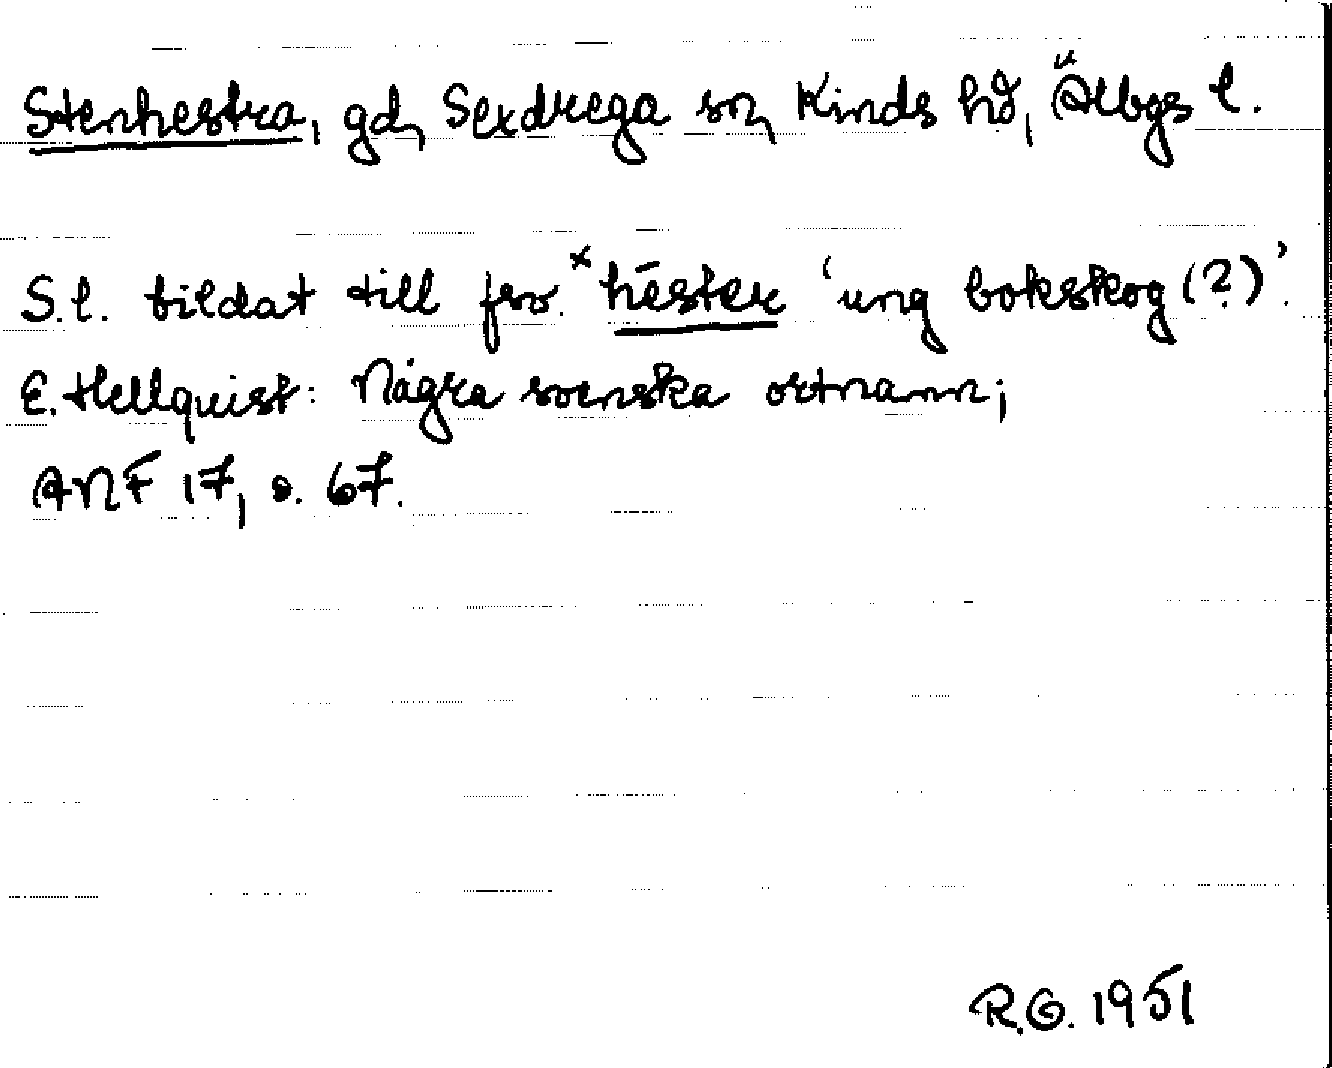 Stenhestra, gd, Sexdrega sn, Kinds hd, Älvbgs l.
S.l. bildat till fsv. *hēster 'ung bokskog (?)'.
E. Hellquist: Några svenska ortnamn;
ANF 17, s. 67.
R.G. 1951